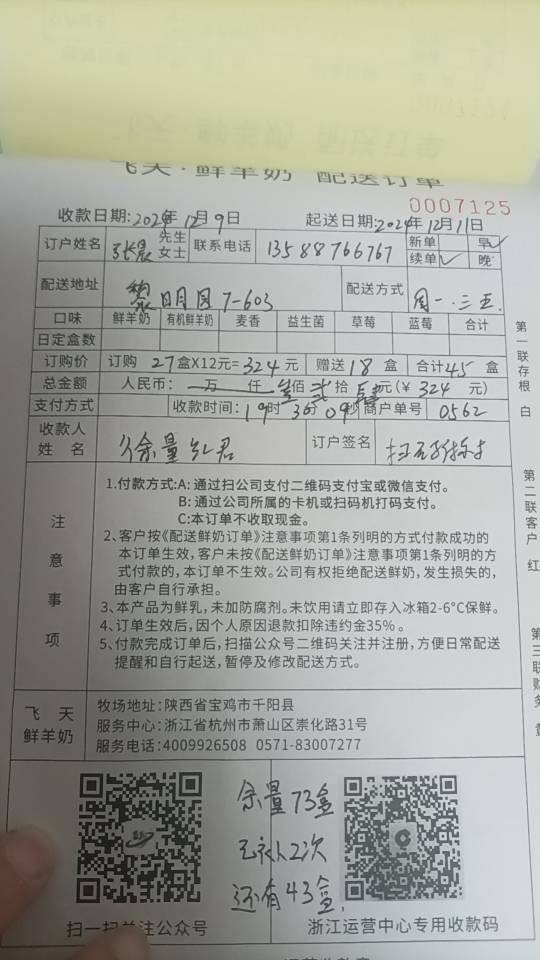 飞天·鲜羊奶 配送订单
0007125
收款日期:2024年12月9日 起送日期:2024年12月11日
订户姓名 张晨 先生 女士 联系电话 13588766767 新单 早✓
续单✓ 晚
配送地址 黎明园7-603 配送方式 周一.三五
口味 鲜羊奶 有机鲜羊奶 麦香 益生菌 草莓 蓝莓 合计
日定盒数
订购价 订购 27盒X12元=324元 赠送18盒 合计45盒
总金额 人民币: 万 仟 叁佰贰拾肆元(¥ 324 元)
支付方式 收款时间:19时36分09秒 商户单号 0562
收款人姓名 订户签名
注意事项
1.付款方式:A:通过扫公司支付二维码支付宝或微信支付。
B:通过公司所属的卡机或扫码机打码支付。
C:本订单不收取现金。
2、客户按《配送鲜奶订单》注意事项第1条列明的方式付款成功的
本订单生效,客户未按《配送鲜奶订单》注意事项第1条列明的方
式付款的,本订单不生效。公司有权拒绝配送鲜奶,发生损失的,
由客户自行承担。
3、本产品为鲜乳,未加防腐剂。未饮用请立即存入冰箱2-6°C保鲜。
4、订单生效后,因个人原因退款扣除违约金35%。
5、付款完成订单后,扫描公众号二维码关注并注册,方便日常配送
提醒和自行起送,暂停及修改配送方式。
飞天鲜羊奶
牧场地址:陕西省宝鸡市千阳县
服务中心:浙江省杭州市萧山区崇化路31号
服务电话:4009926508 0571-83007277
余量73盒
2次
还有43盒
扫一扫关注公众号 浙江运营中心专用收款码
第一联存根 白
第二联客户 红
第三联财务 黄